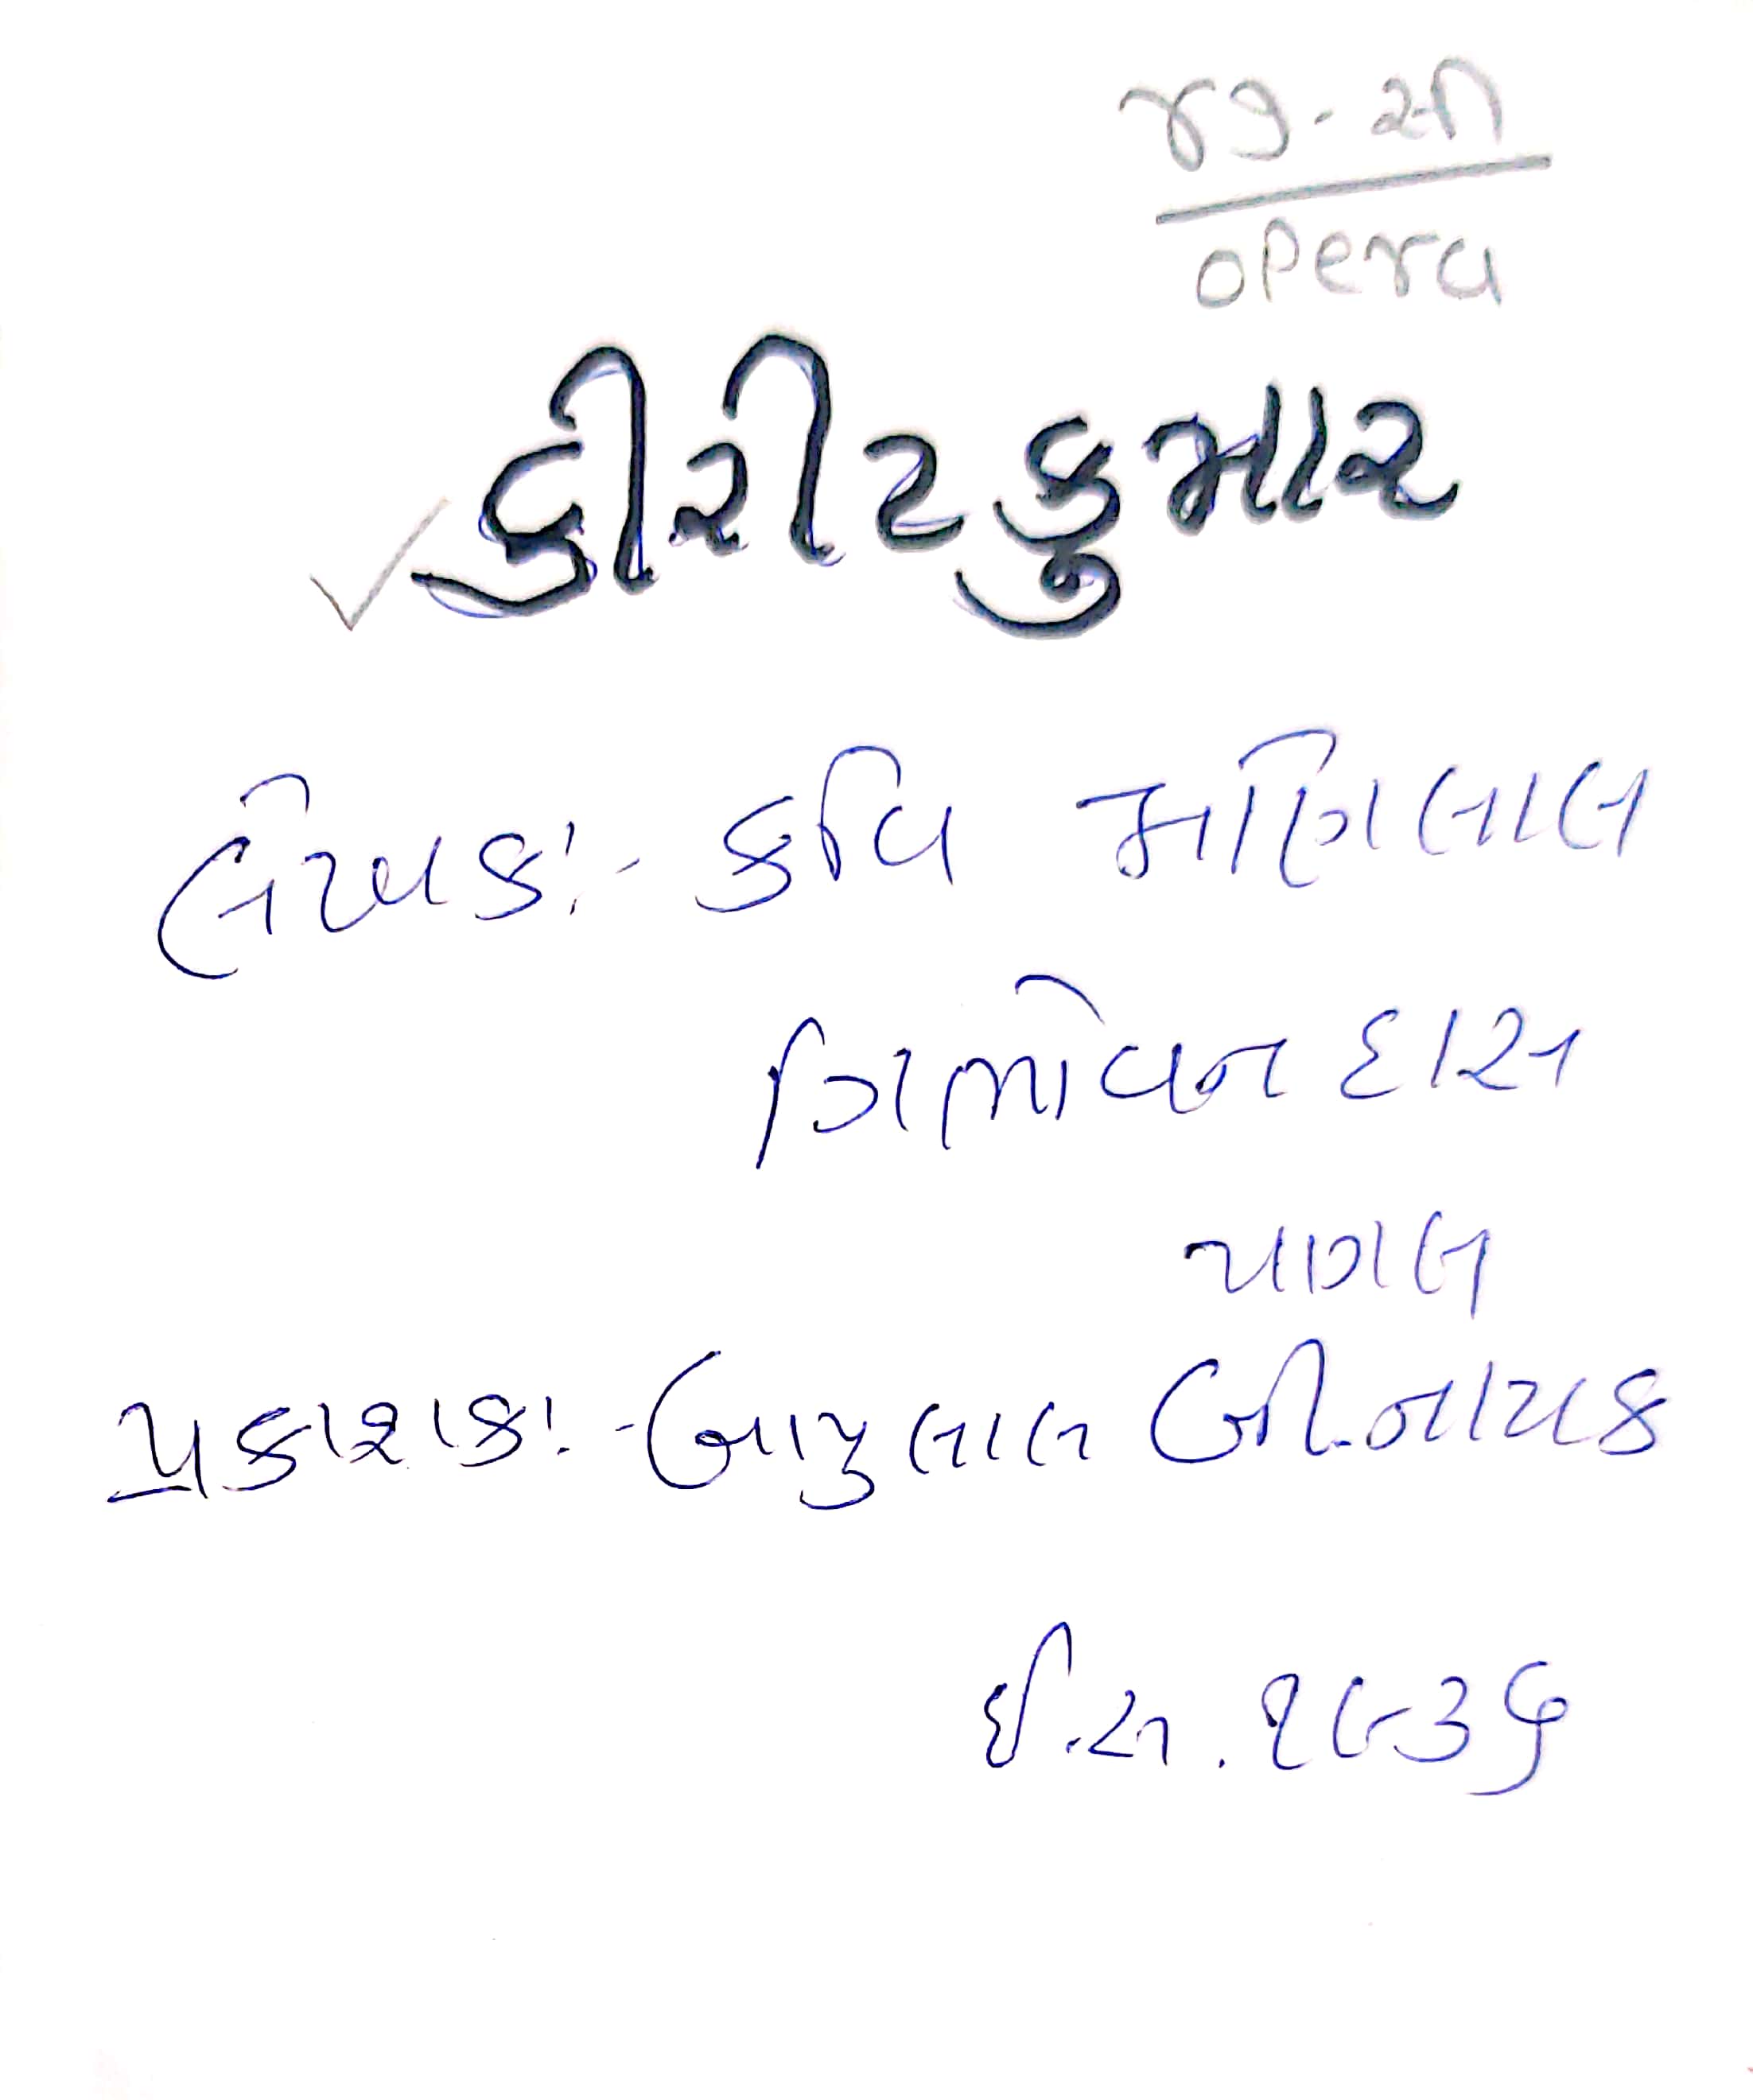 opera
કીરીટકુમાર
લેખક:- કવિ મણિલાલ
ત્રિભોવન દાસ
પાગલ
પ્રકાશક:- બાબુલાલ બી. નાયક
ઈ.સ. ૧૯૩૬